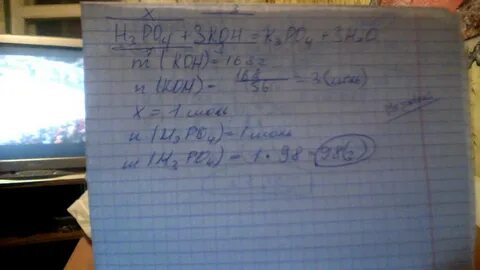 x 3
H₃PO₄ + 3KOH = K₃PO₄ + 3H₂O
m (KOH) = 168г
n (KOH) = 168/56 = 3 (моль)
x = 1 моль
n (H₃PO₄) = 1 моль
m (H₃PO₄) = 1 · 98 = 98г